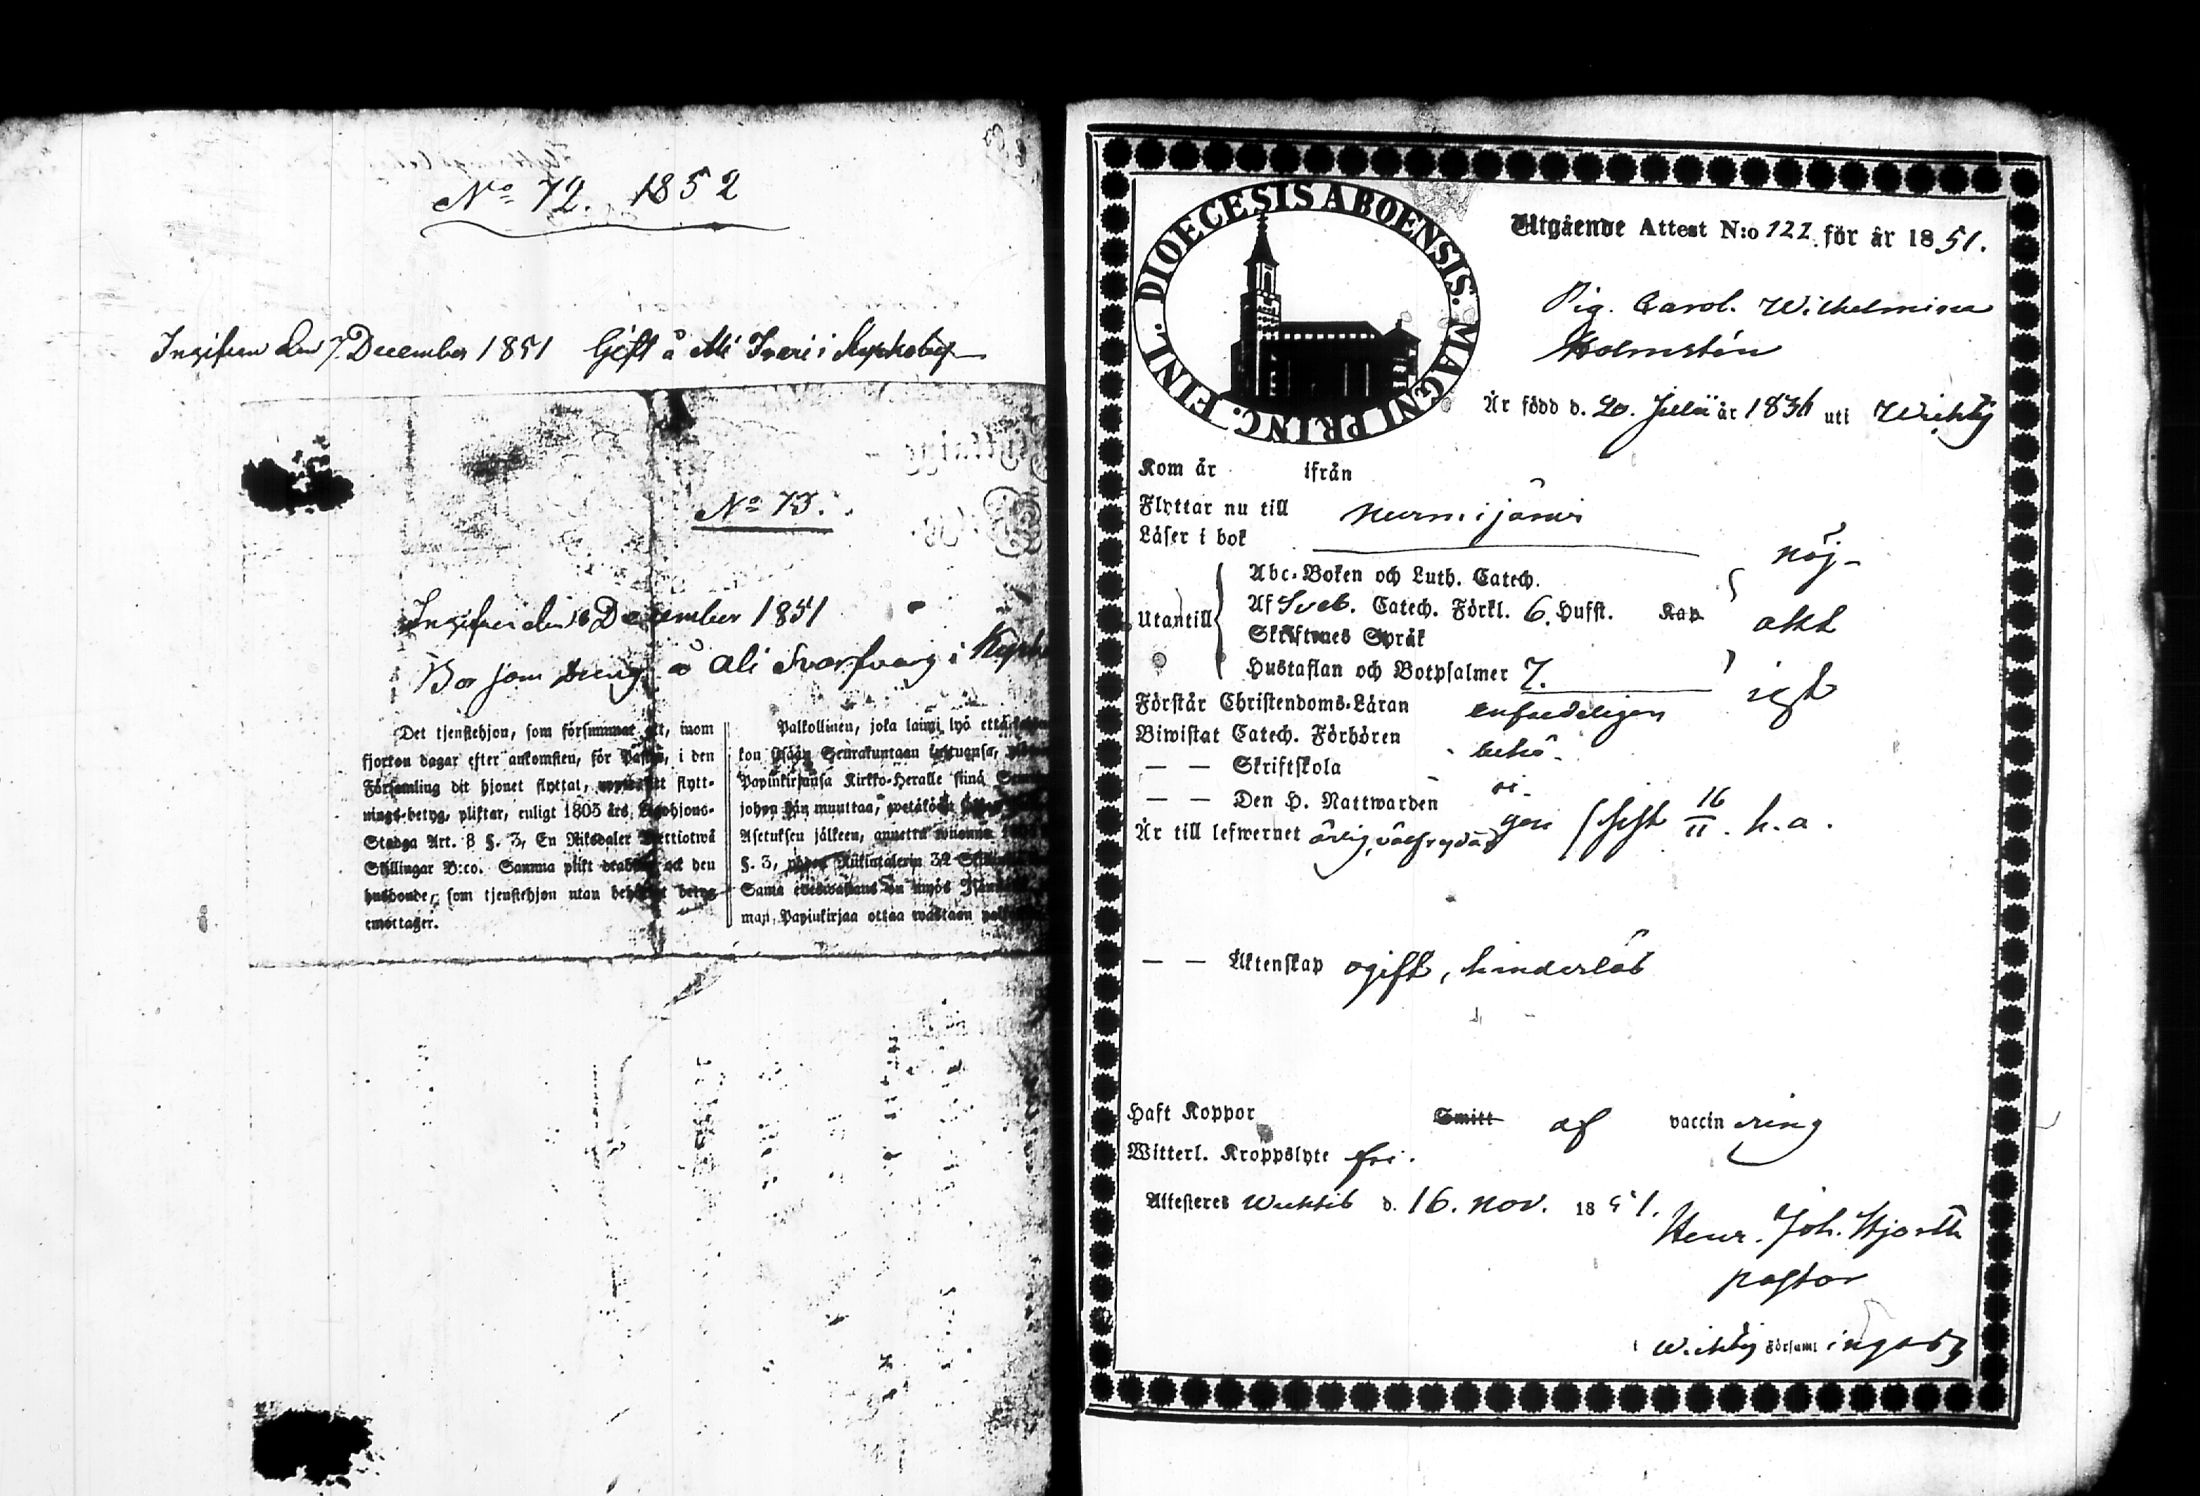 No 72. 1852
Ingifven den 7 December 1851 Gift å Ali
No 73.
Ingifven den December 1851
Bor som dräng å Ali i
Det tjenstehjon, som försummat att, inom
fjorton dagar efter ankomsten, för Pastor, i den
Församling dit hjonet flyttat, flytt-
nings-betyg, pliktar, enligt 1805 års Legohjons-
Stadga Art. 8 §. 3, En Riksdaler Trettiotwå
Skillingar B:co. Samma plikt ock den
husbonde, som tjenstehjon utan betyg
emottager.
Palkollinen, joka laimi lyö että
kon sisään Seurakuntaan
Papinkirjansa Kirkko-Herralle siinä
johon hän muuttaa, wetäköön
Asetuksen jälkeen, annettu
§. 3, Riikintalerin 32
Sama edeswastaus on myös
man Papinkirjaa ottaa wastaan
DIOECESIS ABOENSIS. MAGNI PRINC. FINL.
Utgående Attest N:o 122 för år 1851.
Pig. Carol. Wilhelmina
Holmstén
Är född d. 20. Julii år 1836 uti Wichtis
Kom år ifrån
Flyttar nu till Nurmijärvi
Läser i bok nöj-
Utantill
Abc-Boken och Luth. Catech.
Af Sveb. Catech. Förkl. 6. Hufst. Kap akt
Skriftenes Språk
Hustaflan och Botpsalmer 7. igt
Förstår Christendoms-Läran enfaldeligen
Biwistat Catech. Förhören behö-
— — Skriftskola
— — Den H. Nattwarden ri-
Är till lefwernet ärlig, gen / sist 16/11. h.a.
— — Äktenskap ogift, hinderlös
Haft Koppor Smitt af vaccin ering
Witterl. Kroppslyte fri.
Attesteres Wichtis d. 16. Nov. 1851.
Henr. Joh. Hjorth
pastor
i Wichtis Församl ingar